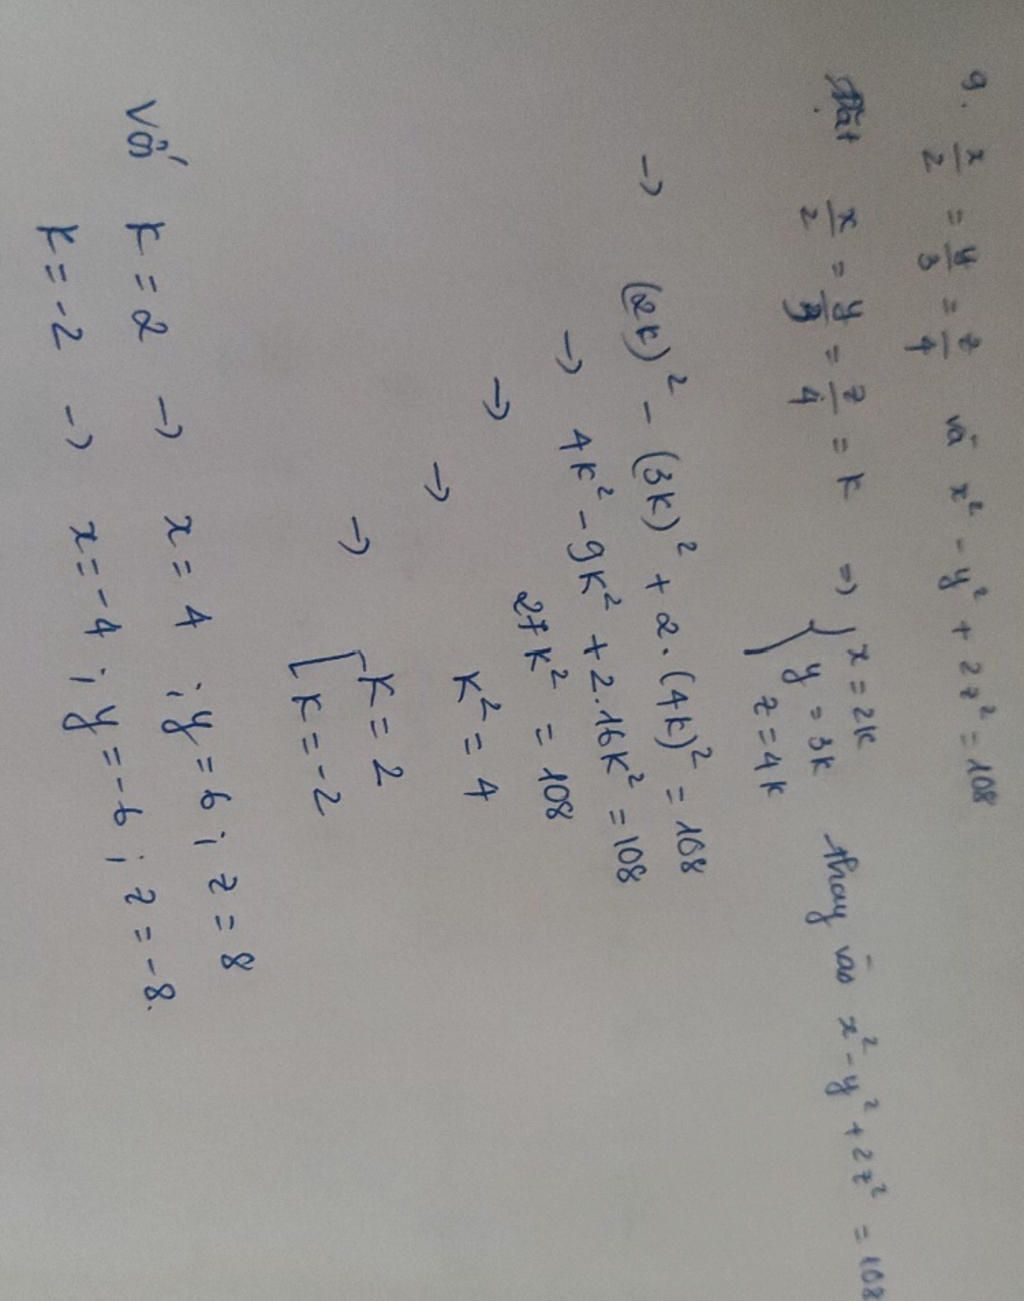 9. x/2 = y/3 = z/4 và x² - y² + 2z² = 108
Đặt x/2 = y/3 = z/4 = k => { x = 2k thay vào x² - y² + 2z² = 108
y = 3k
z = 4k
→ (2k)² - (3k)² + 2.(4k)² = 108
→ 4k² - 9k² + 2.16k² = 108
→ 27k² = 108
→ k² = 4
→ [ k = 2
k = -2
Với k = 2 → x = 4 ; y = 6 ; z = 8
k = -2 → x = -4 ; y = -6 ; z = -8.